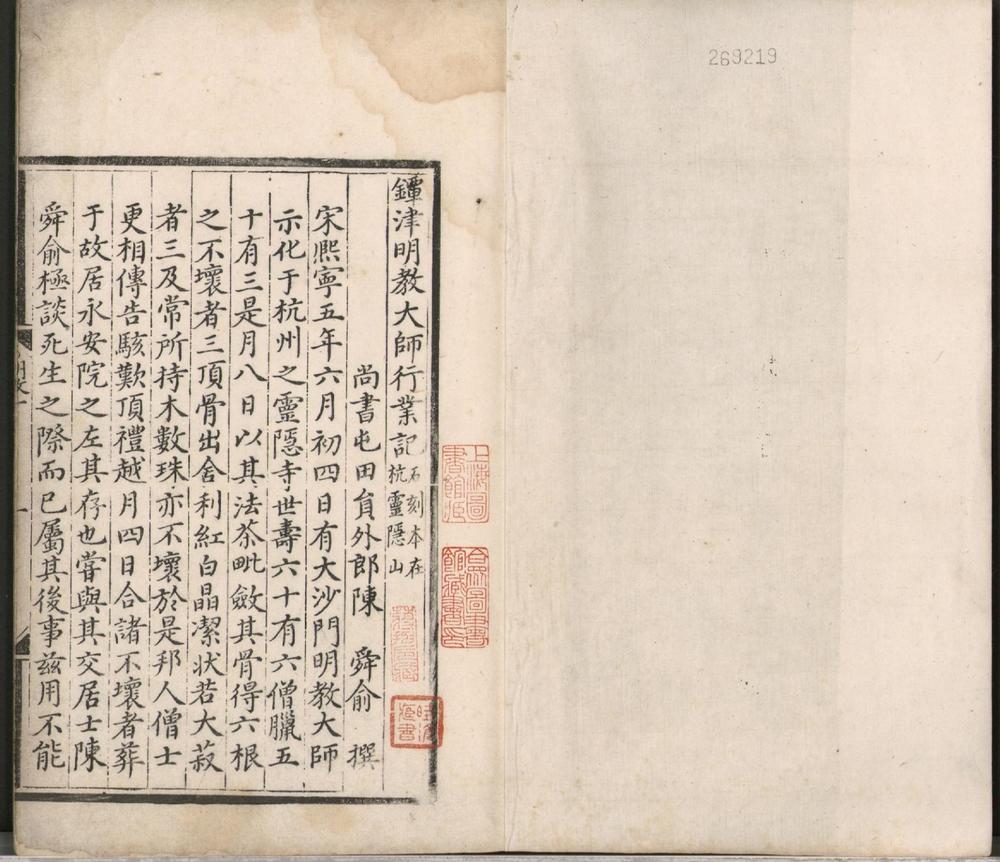 269219
鐔津明教大師行業記 石刻本在杭靈隱山
尚書屯田員外郎陳 舜俞 撰
宋熙寧五年六月初四日有大沙門明教大師
示化于杭州之靈隱寺世壽六十有六僧臘五
十有三是月八日以其法茶毗斂其骨得六根
之不壞者三頂骨出舍利紅白晶潔狀若大菽
者三及常所持木數珠亦不壞於是邦人僧士
更相傳告駭歎頂禮越月四日合諸不壞者葬
于故居永安院之左其存也嘗與其交居士陳
舜俞極談死生之際而已屬其後事茲用不能
上海圖書館藏
合眾圖書館藏書印